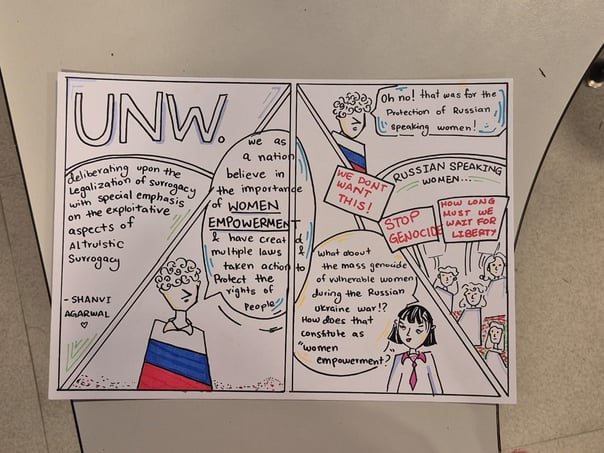 UNW.
deliberating upon the
legalization of surrogacy
with special emphasis
on the exploitative
aspects of
Altruistic
Surrogacy
- SHANVI
AGARWAL
we as
a nation
believe in
the importance
of WOMEN
EMPOWERMENT
& have creat d
multiple laws &
taken action to
Protect the
rights of
People
Oh no! that was for the
Protection of Russian
speaking women!
RUSSIAN SPEAKING
WOMEN...
WE DONT
WANT
THIS!
STOP
GENOCIDE
HOW LONG
MUST WE
WAIT FOR
LIBERTY
what about
the mass genocide
of vulnerable women
during the Russian
Ukraine war!?
How does that
constitute as
"women
empowerment?"